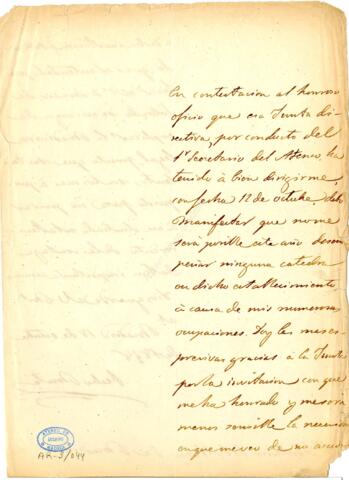 En contestacion al honroso
oficio que esa Junta di-
rectiva, por conducto del
1er Secretario del Ateneo, ha
tenido á bien dirigirme,
con fecha 12 de octubre debo
Manifestar que no me
será posible este año desem-
peñar ninguna catedra
en dicho establecimiento
á causa de mis numerosas
ocupaciones. Doy las mas ex-
presivas gracias á la Junta
por la invitacion con que
me ha honrado y me será
menos sensible la
en que me veo de no
ATENEO DE
MADRID
AR-3/044